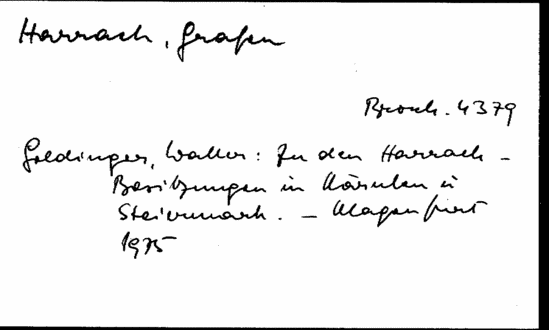 Harrach, Grafen
Brosch. 4379
Goldinger, Walter: Zu den Harrach-
Besitzungen in Kärnten u
Steiermark. – Klagenfurt
1975